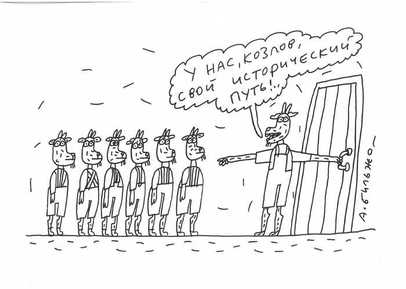 У НАС, КОЗЛОВ,
СВОЙ ИСТОРИЧЕСКИЙ
ПУТЬ!..
А. БИЛЬЖО